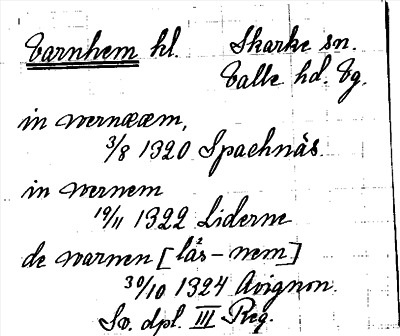 Varnhem kl. Skarke sn.
Valle hd. Vg.
in wernææm,
3/8 1320 Spachnäs.
in wernem
19/11 1322 Liderne
de warnen [läs -nem]
30/10 1324 Avignon.
Sv. dpl. III Reg.